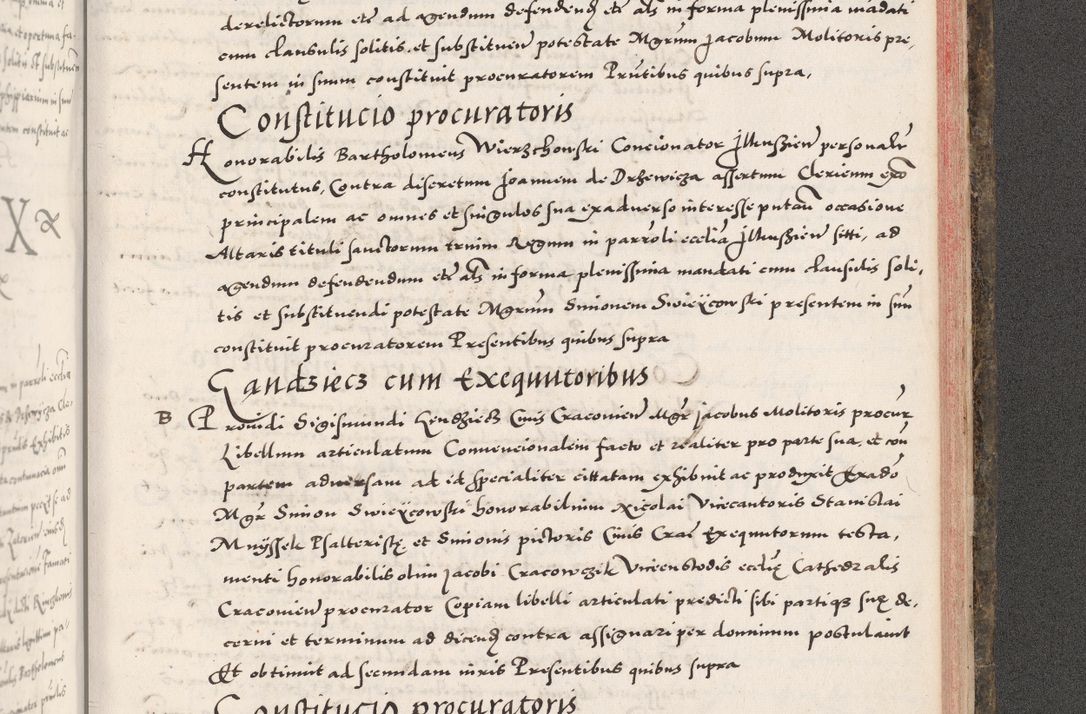 derelictorum etc ad agendum defendend etc als in forma plenissima madati
cum clausulis solitis et substituen potestate Mgrum Jacobum Molitoris pre,
sentem in suum constituit procuratorem Prutibus quibus supra,
Constitucio procuratoris
Honorabilis Bartholomeus Wierzchowski Concionator Illkussien personalr
constitutus, Contra discretum Joannem de Drzewicza assertum Clericum exo
principalem ac omnes et singulos sua exadverso interesse putan occasione
Altaris tituli sanctorum trium Regum in parroli ecclia Illkussien sitti, ad
agendum defendendum etc als in forma plenissima mandati cum clausulis soli,
tis et substituendi potestate Mgrum Simonem Swieÿcowski presentem in suu
constituit procuratorem Presentibus quibus supra
Gandziecz cum Exequutoribus
B Providi Sigismundi Gendziecz Civis Cracovien Mgr Jacobus Molitoris procur
Libellum articulatum Convencionalem facto et realiter pro parte sua, et con
partem adversam ad id specialiter cittatam exhibuit ac produxit Exado
Mgr Simon Swieÿcowski honorabilium Nicolai Vicecantoris Stanislai
Muÿssek Psalteristę et Simonis pictoris Civis Crac Exequutorum testa,
menti honorabilis olim Jacobi Cracowczik Vicecustodis ecclię Cathedralis
Cracovien procurator Copiam libelli articulati predicti sibi partique suę de,
cerni et terminum ad dicend contra assignari per dominum postulavit
Et obtinuit ad secundam iuris Presentibus quibus supra
Constitucio procuratoris